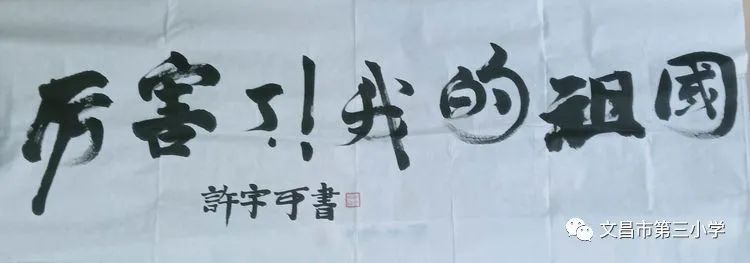 厉害了!我的祖國
許宇可書
文昌市第三小学